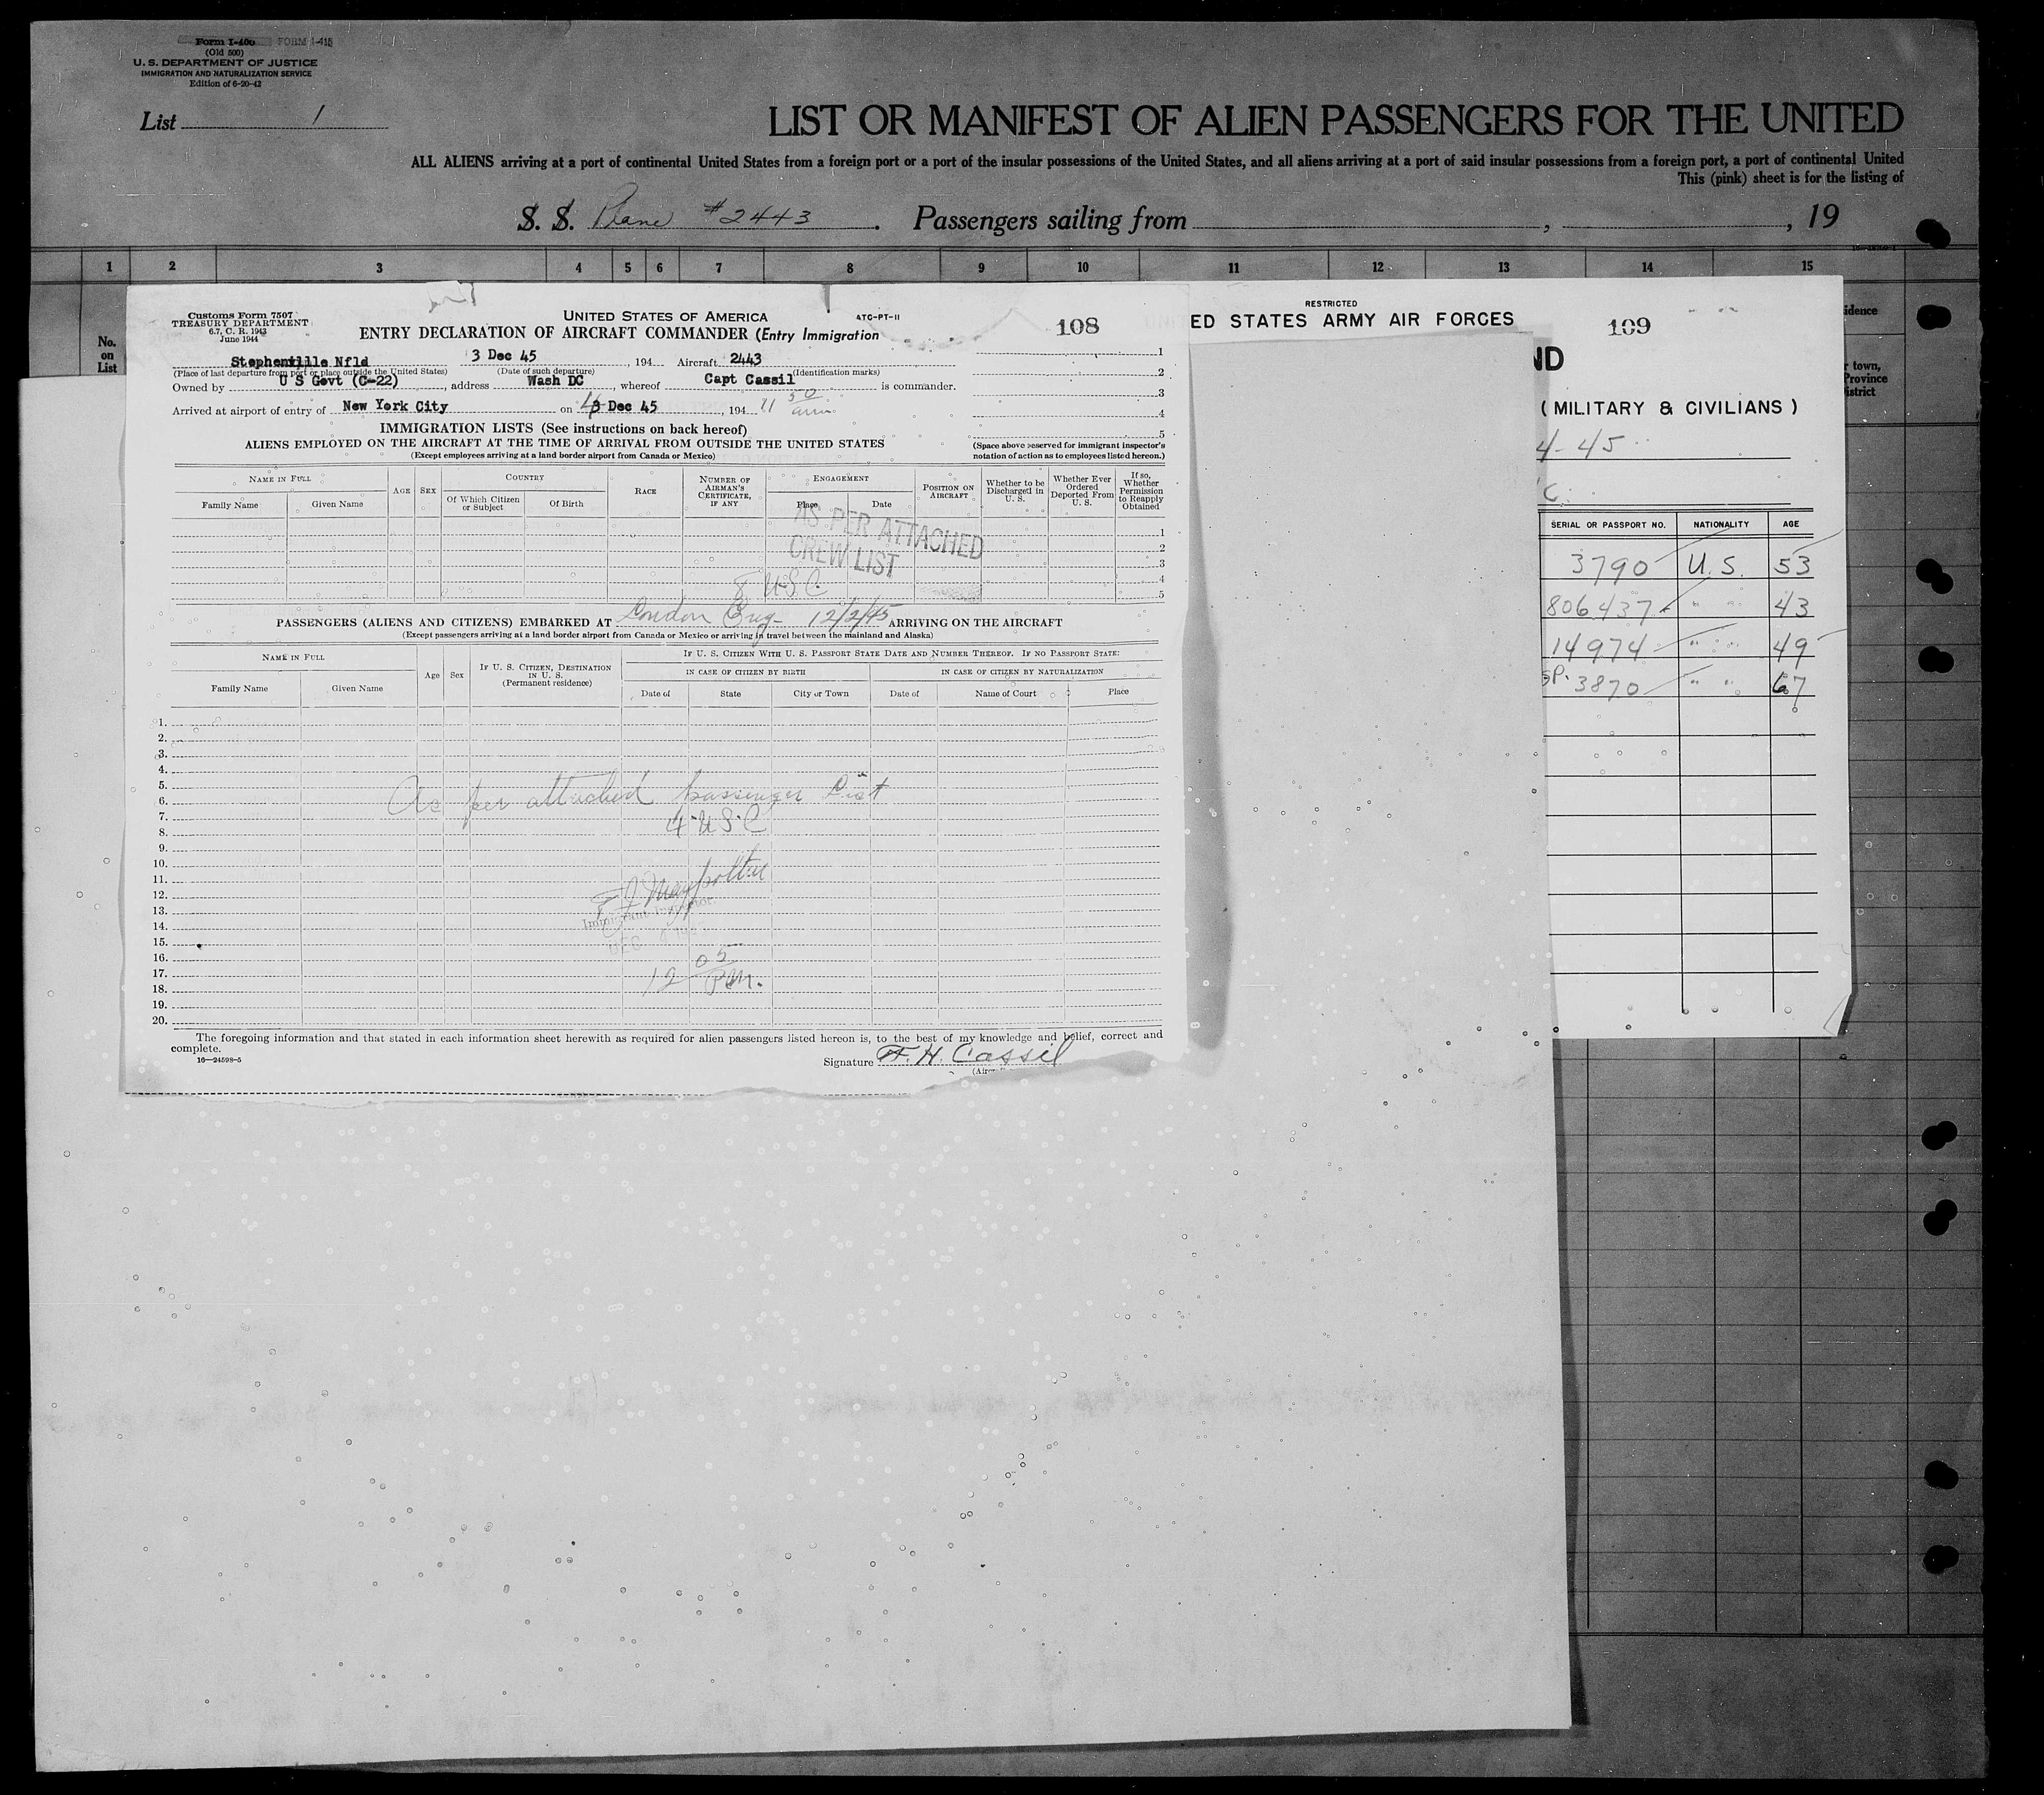 Form I-400 FORM I-415
(Old 500)
U. S. DEPARTMENT OF JUSTICE
IMMIGRATION AND NATURALIZATION SERVICE
Edition of 6-20-42
List 1
LIST OR MANIFEST OF ALIEN PASSENGERS FOR THE UNITED
ALL ALIENS arriving at a port of continental United States from a foreign port or a port of the insular possessions of the United States, and all aliens arriving at a port of said insular possessions from a foreign port, a port of continental United
This (pink) sheet is for the listing of
S. S. Plane #2443. Passengers sailing from , , 19
1 2 3 4 5 6 7 8 9 10 11 12 13 14 15
No.
on
List
idence
r town,
Province
istrict
Customs Form 7507
TREASURY DEPARTMENT
6.7, C. R. 1943
June 1944
UNITED STATES OF AMERICA
ATC-PT-11
108
ENTRY DECLARATION OF AIRCRAFT COMMANDER (Entry Immigration
Stephenville Nfld 3 Dec 45, 194 Aircraft 2443
(Place of last departure from port or place outside the United States) (Date of such departure) (Identification marks)
Owned by U S Govt (C-22), address Wash DC, whereof Capt Cassil is commander.
Arrived at airport of entry of New York City on 4 3 Dec 45, 194 11 50 am
1
2
3
4
5
(Space above reserved for immigrant inspector's
notation of action as to employees listed hereon.)
IMMIGRATION LISTS (See instructions on back hereof)
ALIENS EMPLOYED ON THE AIRCRAFT AT THE TIME OF ARRIVAL FROM OUTSIDE THE UNITED STATES
(Except employees arriving at a land border airport from Canada or Mexico)
NAME IN FULL
Family Name Given Name
AGE SEX
COUNTRY
Of Which Citizen or Subject
Of Birth
RACE
NUMBER OF AIRMAN'S CERTIFICATE, IF ANY
ENGAGEMENT
Place Date
POSITION ON AIRCRAFT
Whether to be Discharged in U. S.
Whether Ever Ordered Deported From U. S.
If so, Whether Permission to Reapply Obtained
AS PER ATTACHED
CREW LIST
8 U.S.C
1
2
3
4
5
PASSENGERS (ALIENS AND CITIZENS) EMBARKED AT London Eng- 12/2/45 ARRIVING ON THE AIRCRAFT
(Except passengers arriving at a land border airport from Canada or Mexico or arriving in travel between the mainland and Alaska)
NAME IN FULL
Family Name Given Name
Age Sex
IF U. S. CITIZEN, DESTINATION IN U. S.
(Permanent residence)
IF U. S. CITIZEN WITH U. S. PASSPORT STATE DATE AND NUMBER THEREOF. IF NO PASSPORT STATE:
IN CASE OF CITIZEN BY BIRTH
IN CASE OF CITIZEN BY NATURALIZATION
Date of State City or Town Date of Name of Court Place
1.
2.
3.
4.
5.
6.
7.
8.
9.
10.
11.
12.
13.
14.
15.
16.
17.
18.
19.
20.
As per attached passenger List
4 U.S.C
Immigrant Inspector
DEC 4
12 05 P.M.
The foregoing information and that stated in each information sheet herewith as required for alien passengers listed hereon is, to the best of my knowledge and belief, correct and
complete.
16—24598-5
Signature F. H. Cassil
RESTRICTED
ED STATES ARMY AIR FORCES
109
ND
(MILITARY & CIVILIANS)
4-45
C.
SERIAL OR PASSPORT NO. NATIONALITY AGE
3790 U.S. 53
806437 " " 43
14974 " " 49
SP. 3870 " " 67